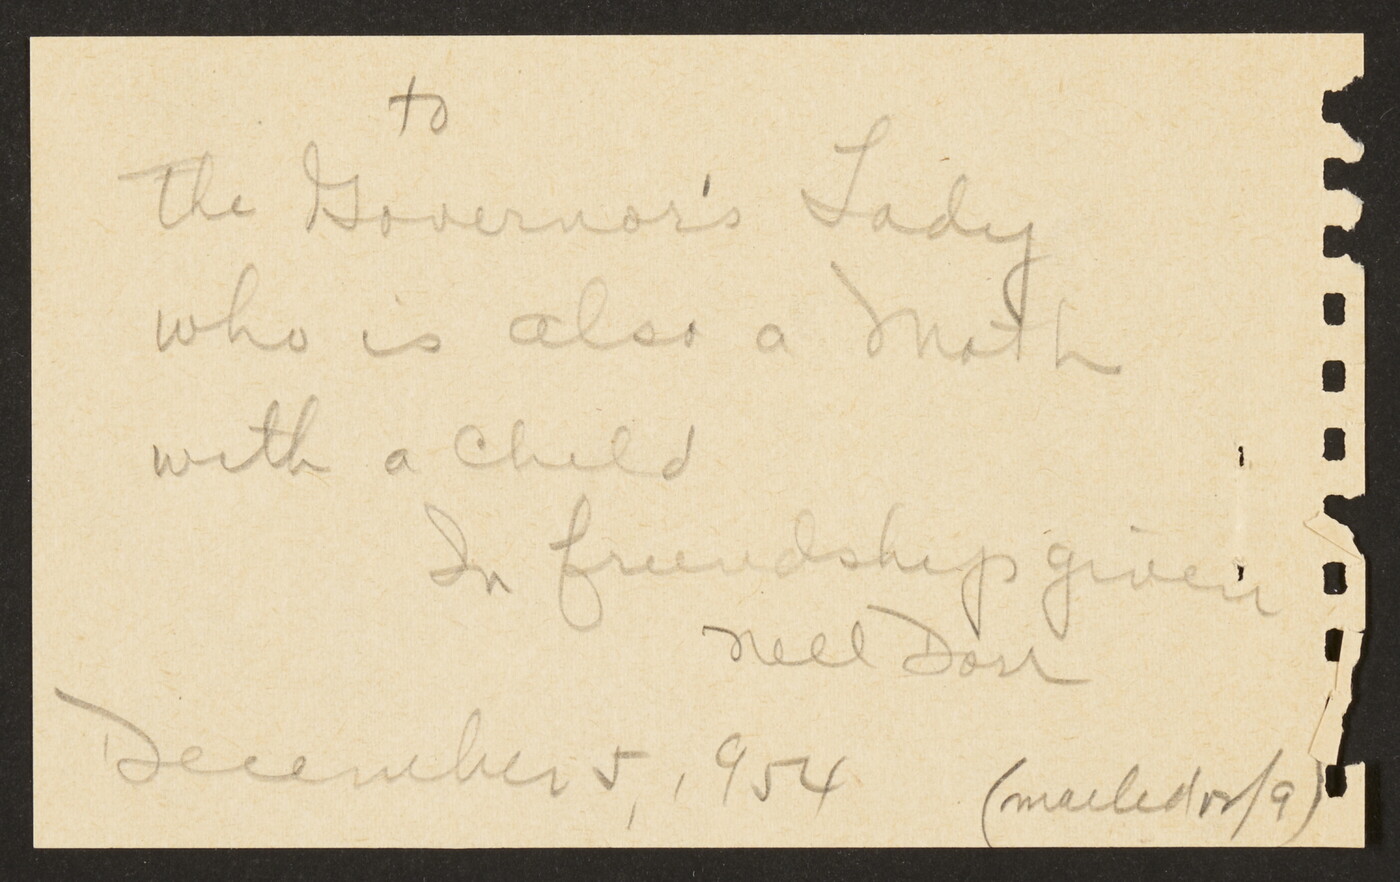 to
the Governor's Lady
who is also a Moth
with a Child
In friendship given
Nell Dorr
December 5, 1954 (mailed 12/9)